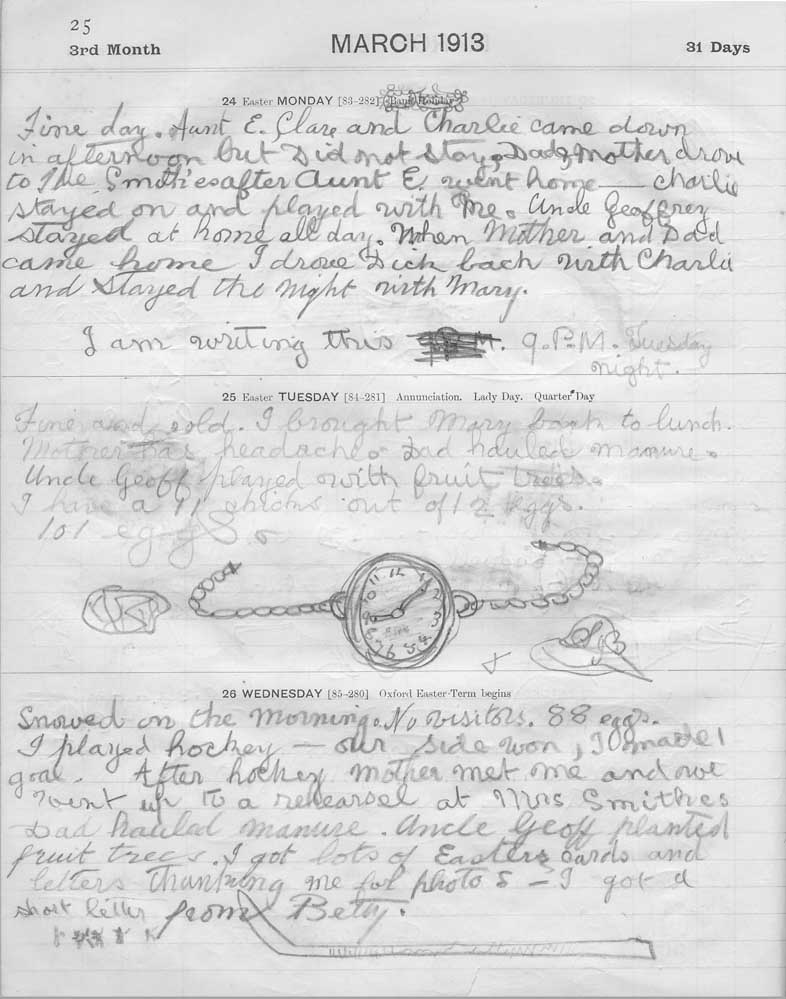 25
3rd Month
MARCH 1913
31 Days
24 Easter MONDAY [83-282] Bank Holiday
Fine day. Aunt E. Clare and Charlie came down
in afternoon but Did not stay. Dad & Mother drove
to The Smith'es after Aunt E. went home — Charlie
stayed on and played with Me. Uncle Geoffrey
stayed at home all day. When Mother and Dad
came home I drove Dick back with Charlie
and Stayed the Night with Mary.
I am writing this M. 9.P.M. Tuesday
night.
25 Easter TUESDAY [84-281] Annunciation. Lady Day. Quarter Day
Fine and cold. I brought Mary back to lunch.
Mother has headache. Dad hauled manure.
Uncle Geoff played with fruit trees.
I have a 11 chicks out of 12 Eggs.
101 eggs.
11 12 1 2 3 4 5 6 7 8 9 10
26 WEDNESDAY [85-280] Oxford Easter-Term begins
Snowed on the Morning. No visitors. 88 eggs.
I played hockey — our side won, I made 1
goal. After hockey Mother met me and we
went up to a rehearsel at Mrs Smithes
Dad hauled manure. Uncle Geoff planted
fruit trees. I got lots of Easters cards and
letters thanking me for photos — I got a
short letter from Betty.